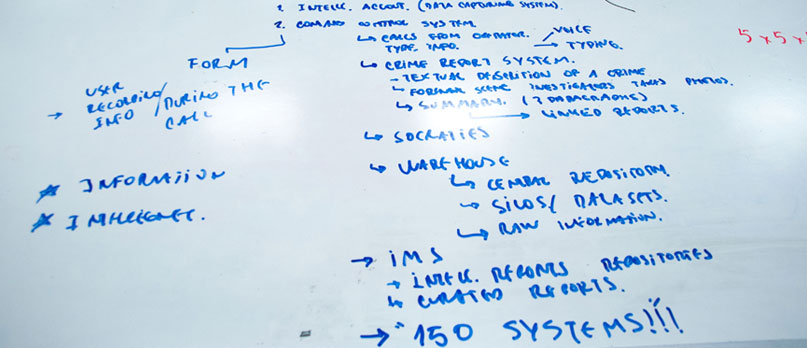 1. INTELL. ACCOUNT. (DATA CAPTURING SYSTEM).
2. COMMAND CONTROL SYSTEM
↳ CALLS FROM OPERATOR. VOICE
TYPE INFO. → TYPING.
FORM
↳ CRIME REPORT SYSTEM.
- TEXTUAL DESCRIPTION OF A CRIME
↳ FORENSIC SCENE INVESTIGATORS TAKES PHOTOS.
↳ SUMMARY. (7 PARAGRAPHS)
↳ LINKED REPORTS.
→ USER RECORDING INFO / DURING THE CALL
↳ SOCRATIES
↳ WAREHOUSE
↳ CENTRAL REPOSITORY.
↳ SILOS/ DATASETS.
↳ RAW INFORMATION.
* INFORMATION
* INTELLIGENCE.
→ IMS
→ INTELL. REPORTS REPOSITORIES
↳ CURATED REPORTS.
→ "150 SYSTEMS!!!
5 x 5 x 5